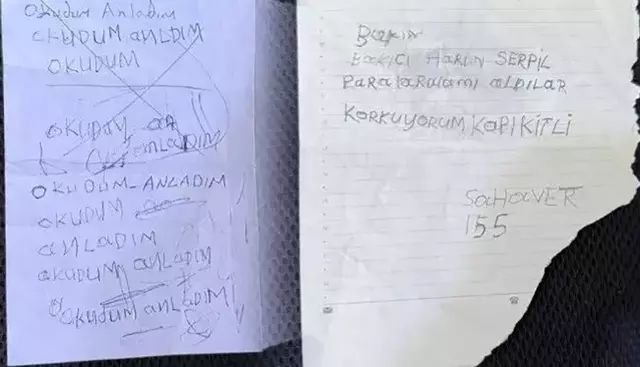 okudum Anladım
OKUDUM anLDIM
OKUDUM
OKUDUM an
anLaDIM
OKUDUM-ANLADIM
OKUDUM
anLaDIM
OKUDUM anLaDIM
OKUDUM anLaDIM
Bakın
BaKICI HARUN-SERPİL
Para alDILAR
KORKUYORUM KAPI KİTLİ
155